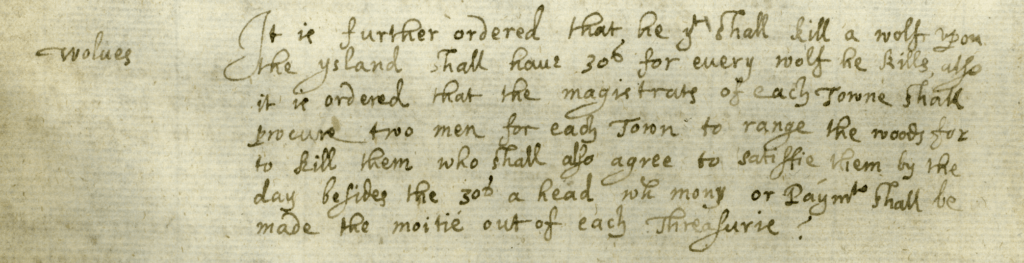 Wolves
It is further ordered that he yt shall kill a wolf upon
the ysland shall have 30s for every wolf he kills, also
it is ordered that the magistrats of each Towne shall
procure two men for each Town to range the woods for
to kill them who shall also agree to satisfie them by the
day besides the 30s a head wch mony or Paymts shall be
made the moitié out of each Threasurie